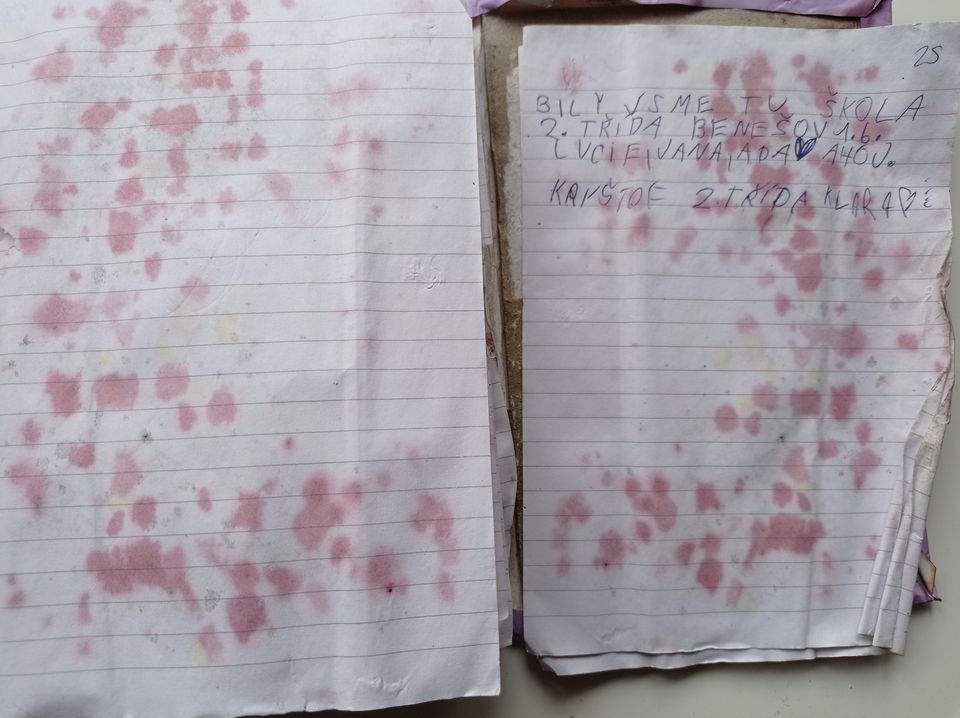 25
BILY JSME TU ŠKOLA
2. TŘÍDA BENEŠOV 1.6.
LUCIE, JANA, ADA AHOJ.
KRYŠTOF 2. TŘÍDA KLARA